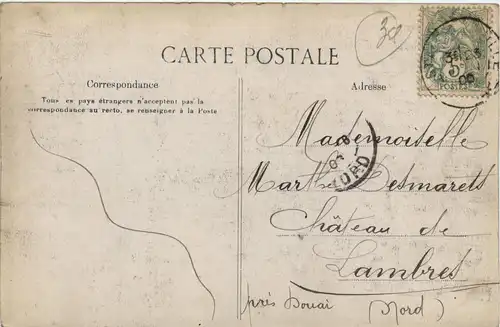 30
CARTE POSTALE
Correspondance
Tous les pays étrangers n'acceptent pas la
correspondance au recto, se renseigner à la Poste
Adresse
Mademoiselle
Marthe Desmarets
Château de
Lambres
près Douai (Nord)
NORD
5
POSTES